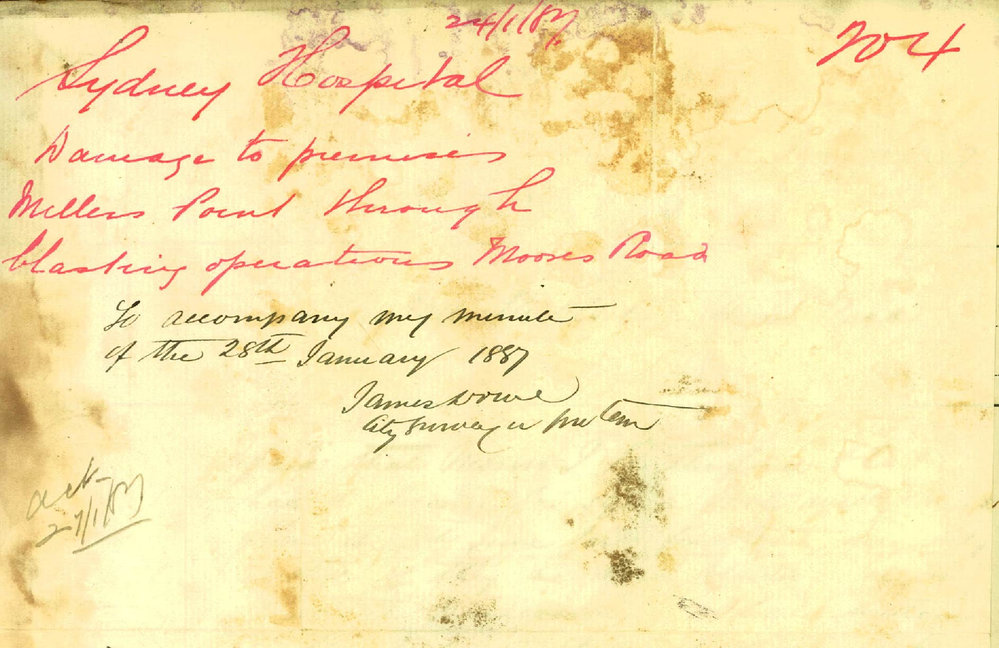 24/1/87
204
Sydney Hospital
Damage to premises
Millers Point through
blasting operations Moores Road
To accompany my minute
of the 28th January 1887
James Dowe
City Surveyor pro tem
ack
27/1/87